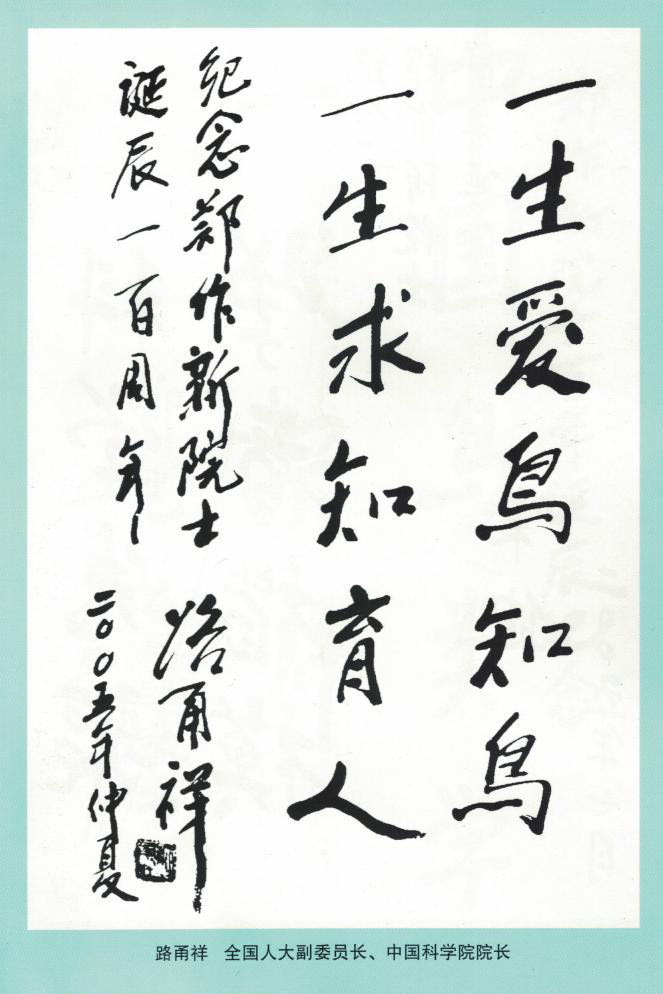 一生爱鸟知鸟
一生求知育人
纪念郑作新院士
诞辰一百周年
路甬祥
二〇〇五年仲夏
路甬祥 全国人大副委员长、中国科学院院长